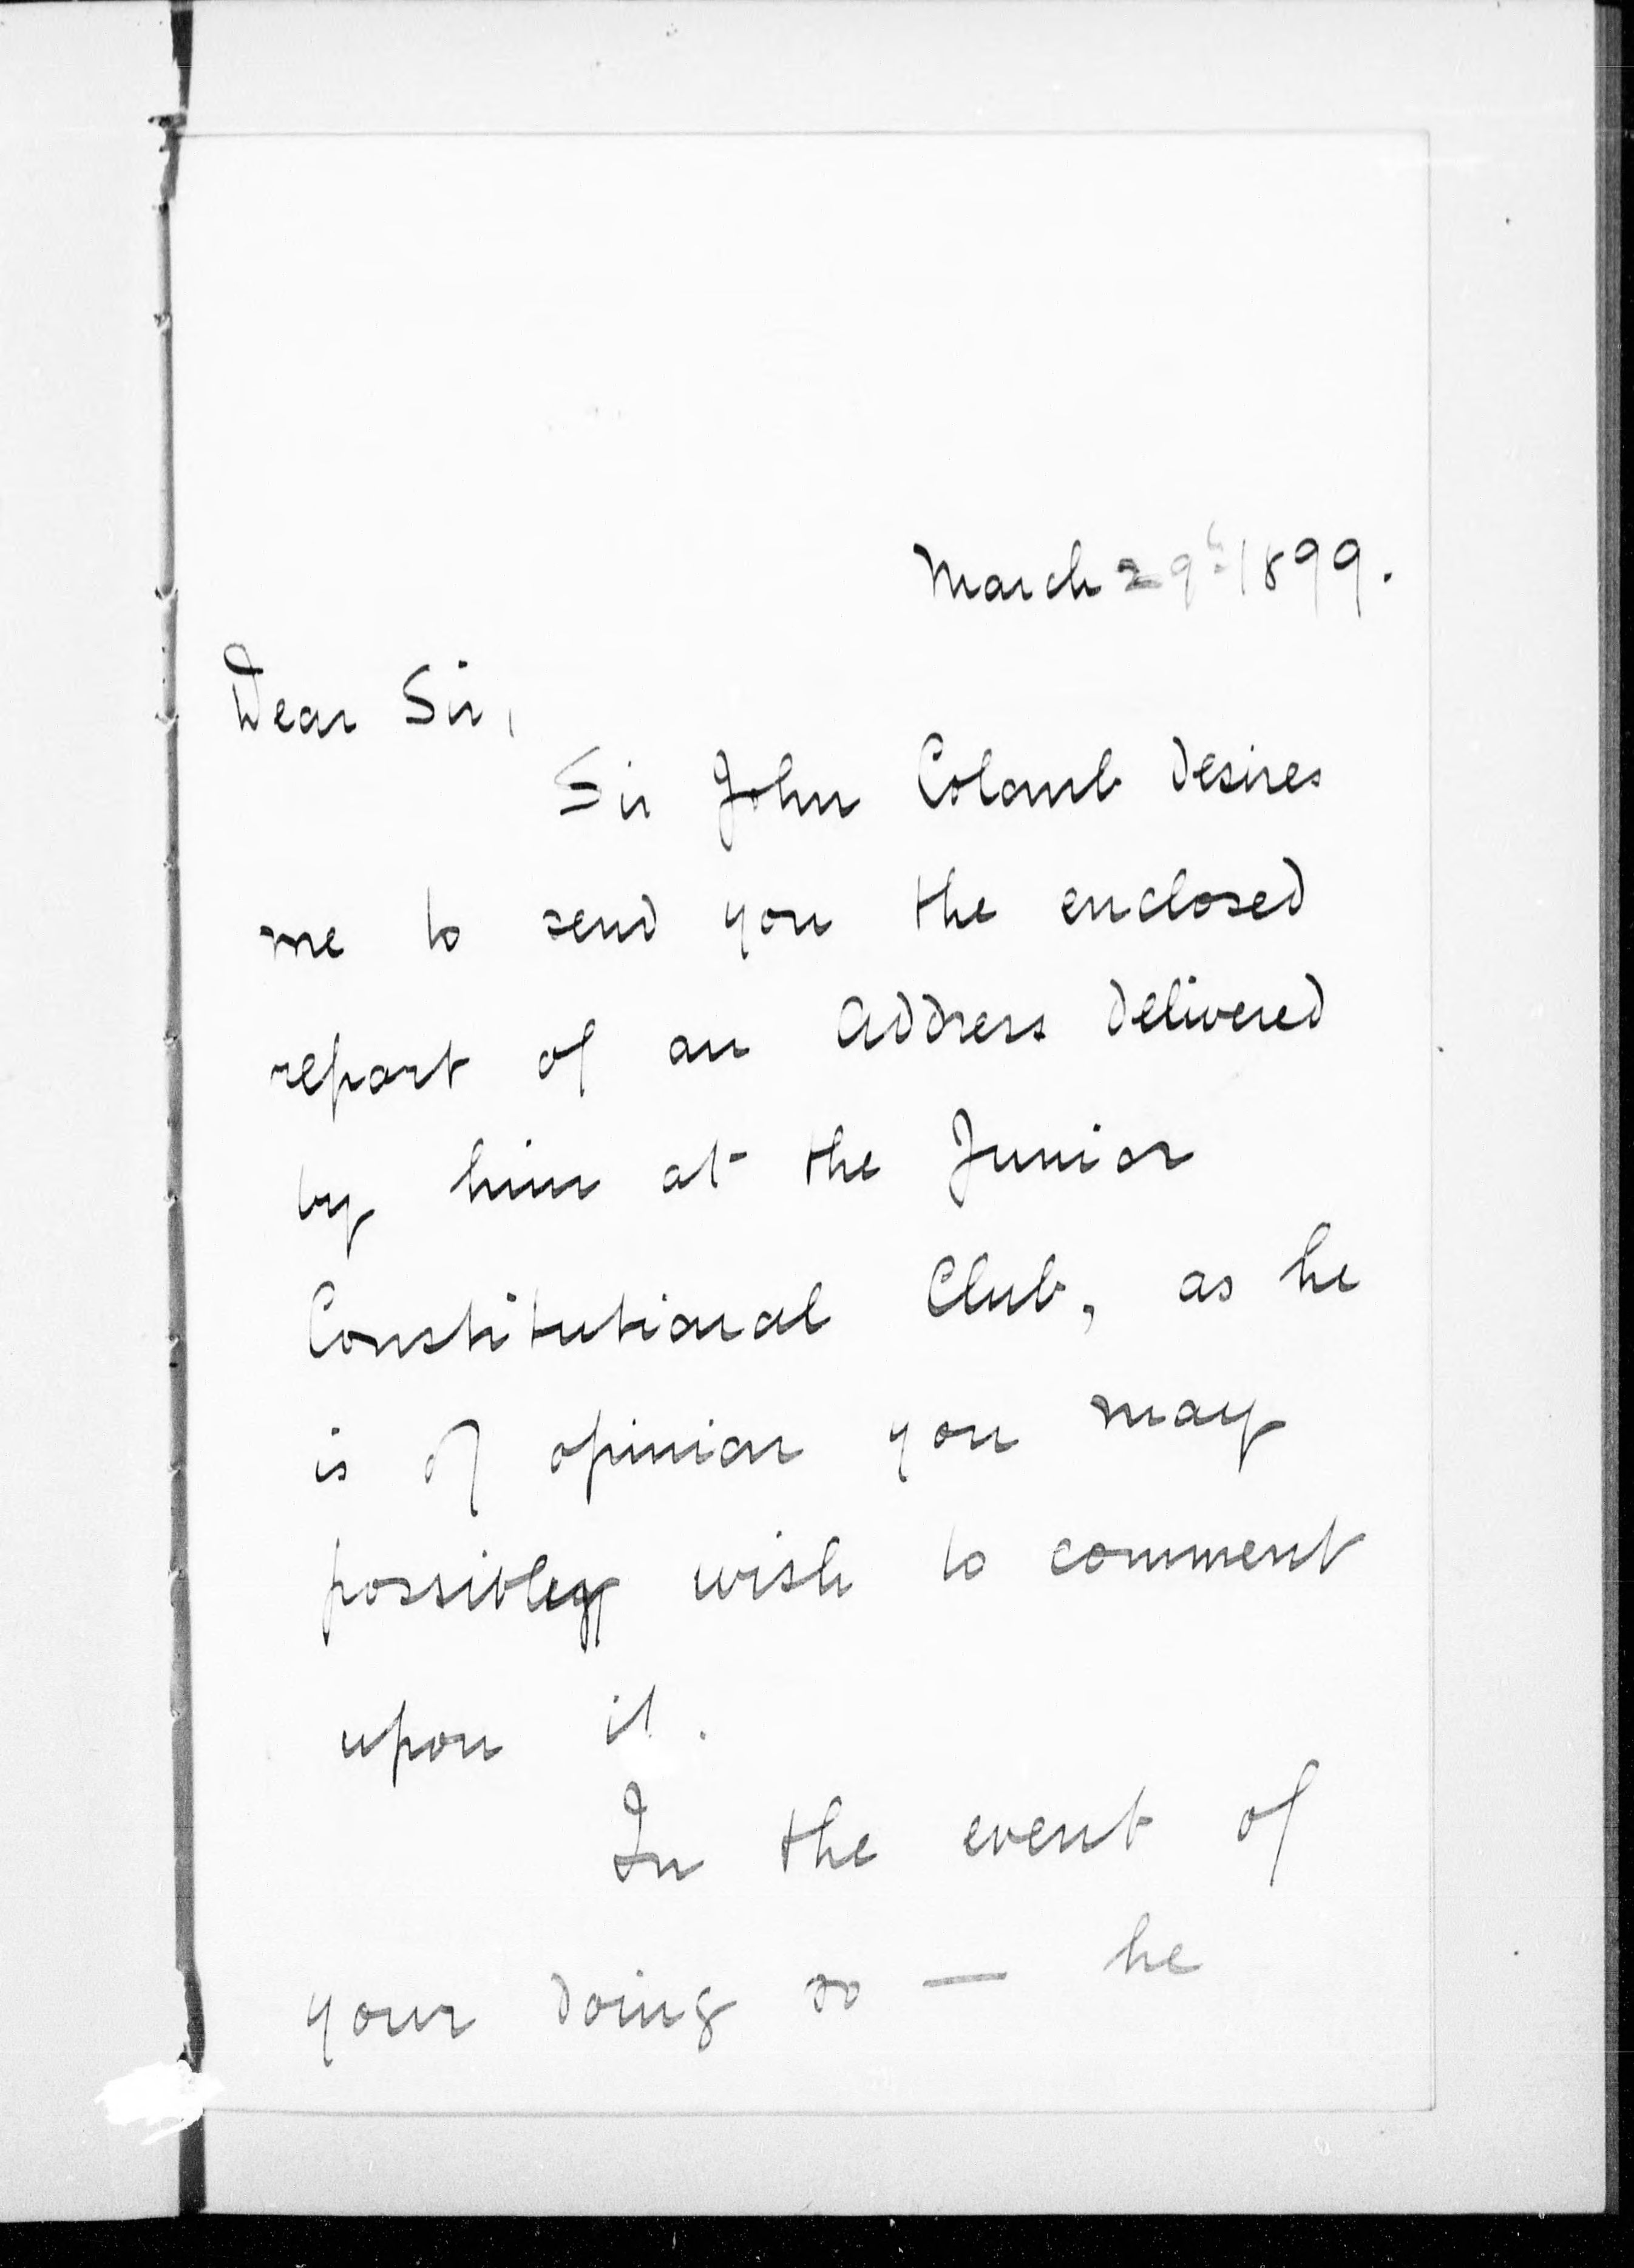 March 29th 1899.
Dear Sir,
Sir John Colomb desires
me to send you the enclosed
report of an Address delivered
by him at the Junior
Constitutional Club, as he
is of opinion you may
possibly wish to comment
upon it.
In the event of
your doing so — he